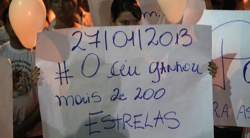 27/01/2013
# O céu ganhou
mais de 200
ESTRELAS